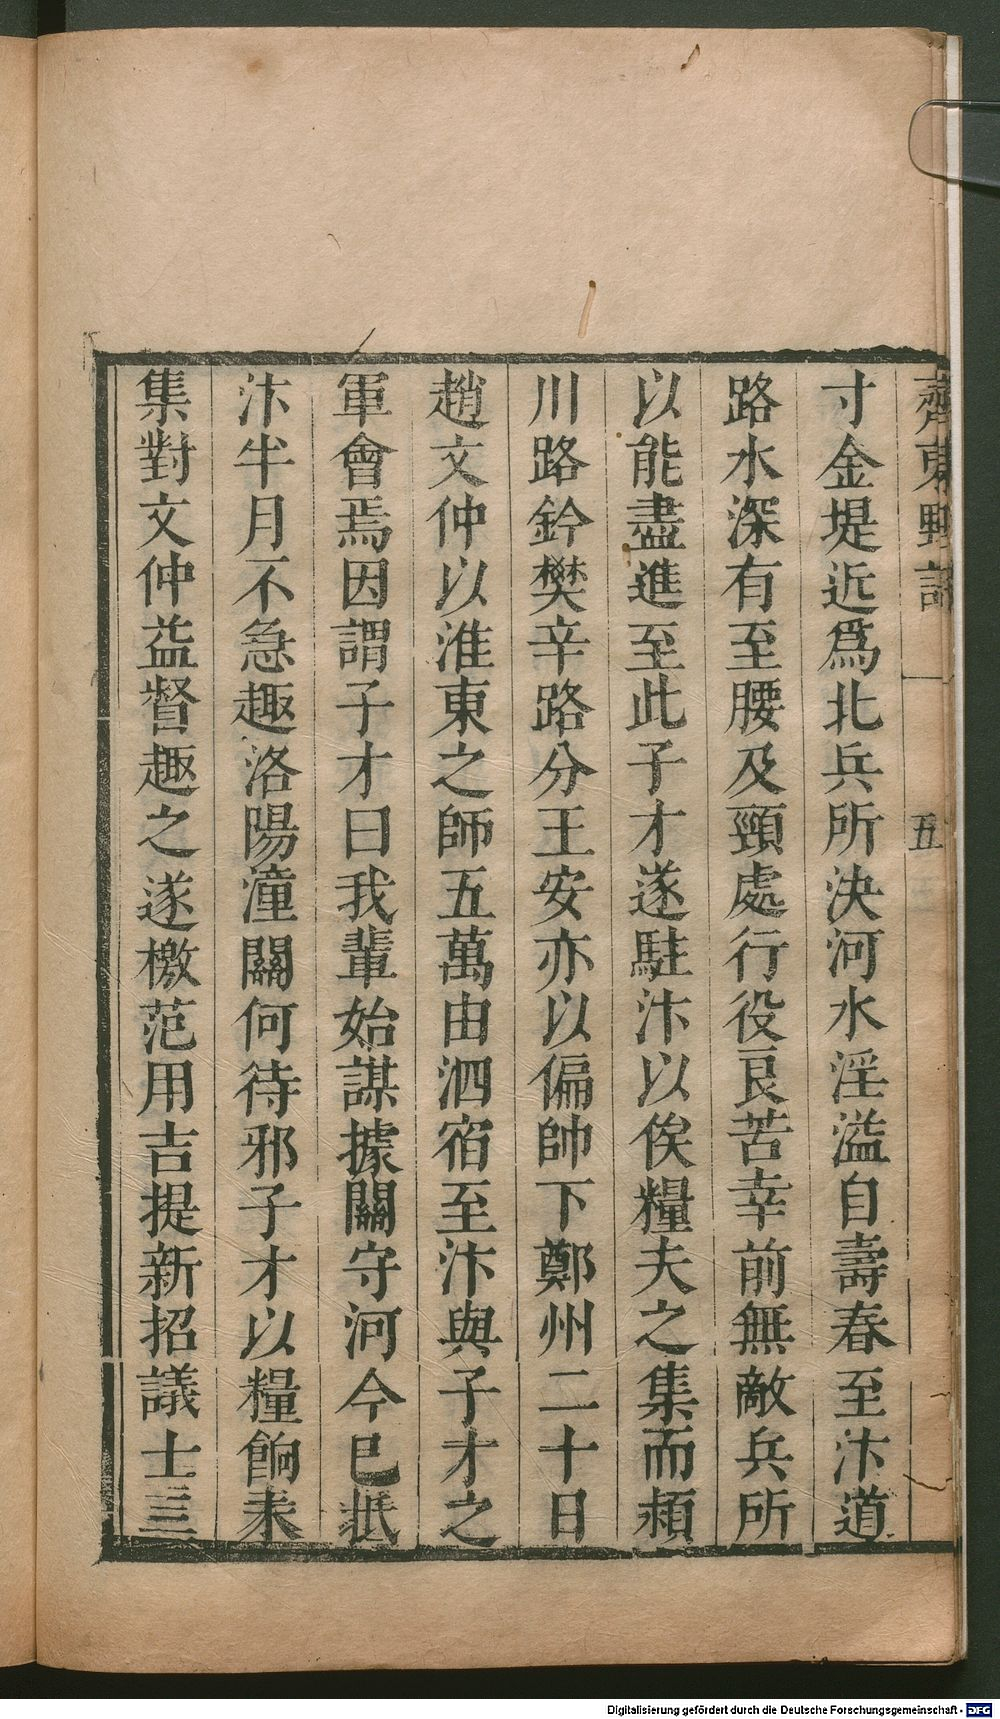 齊東野語
五
寸金堤近爲北兵所決河水淫溢自壽春至汴道
路水深有至腰及頸處行役艮苦幸前無敵兵所
以能盡進至此子才遂駐汴以俟糧夫之集而頴
川路鈐樊辛路分王安亦以偏帥下鄭州二十日
趙文仲以淮東之師五萬由泗宿至汴與子才之
軍會焉因謂子才曰我輩始謀據關守河今已抵
汴半月不急趣洛陽潼關何待邪子才以糧餉未
集對文仲益督趣之遂檄范用吉提新招議士三
Digitalisierung gefördert durch die Deutsche Forschungsgemeinschaft - DFG